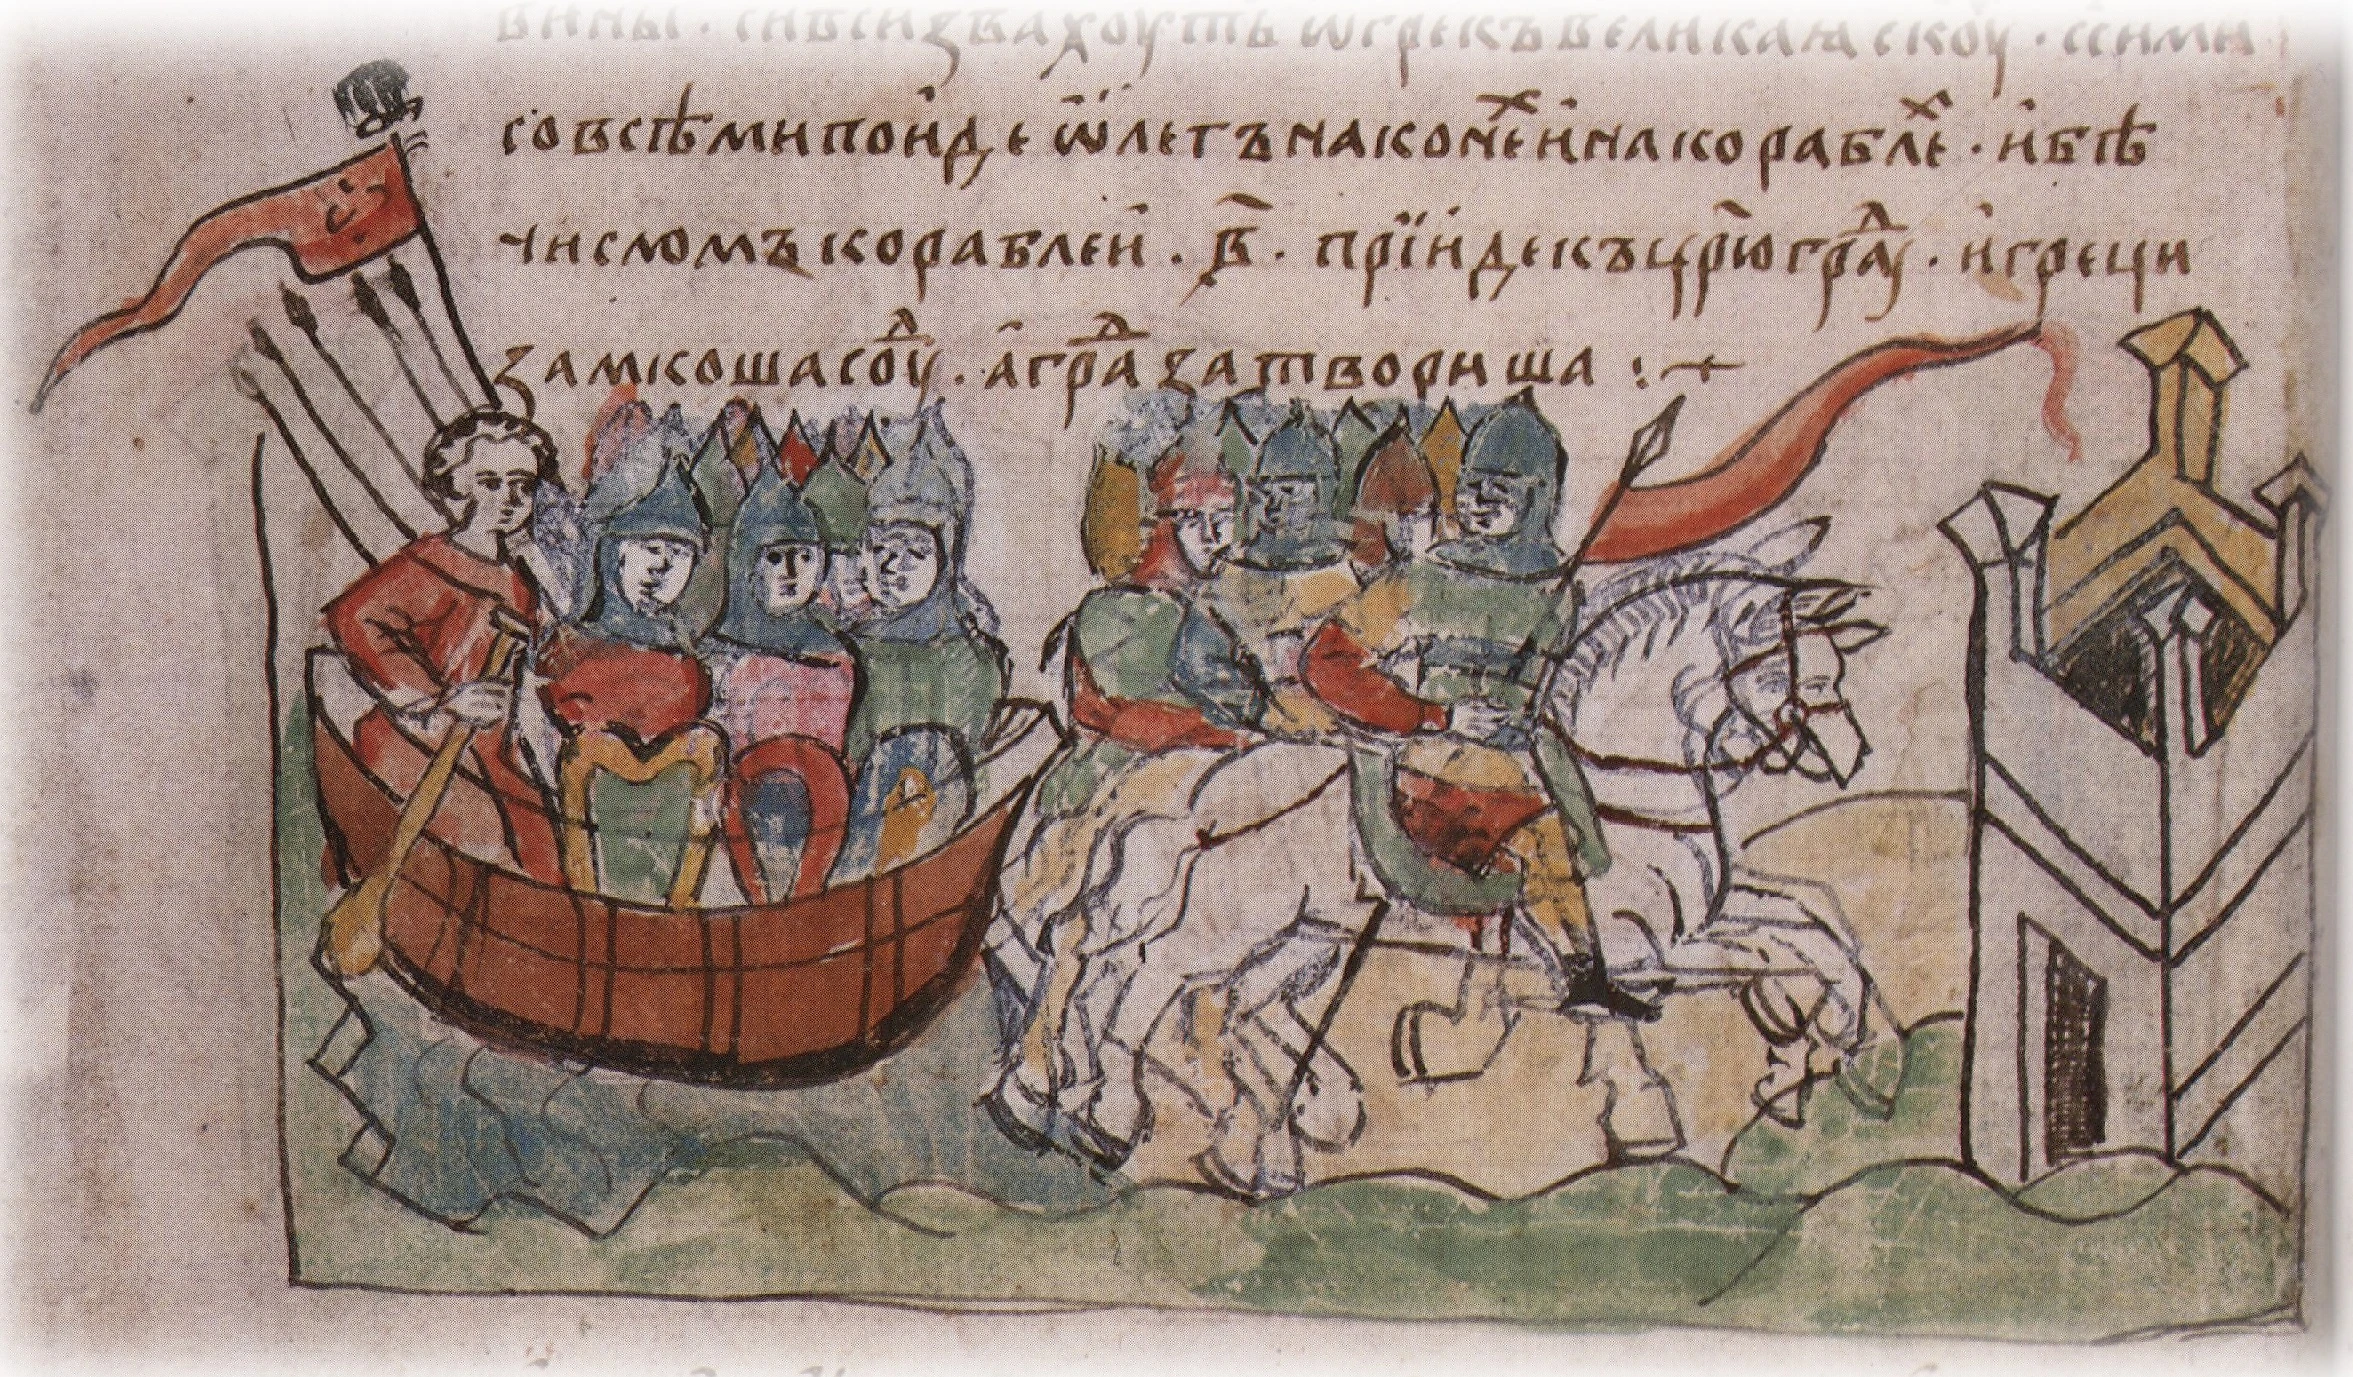 вины · сивсизвахоуть ѿгрекъ великаꙗ скоуⷴ · ссими
совсѣми поиде ѡ҆легъ на конеⷯ и҆ на кораблеⷯ · и҆ бѣ
числомъ кораблеи҆ · в҃ · прїиде къ цр҃югра́дꙋ · и҆ греци
замкоша соуⷣ · а҆ граⷣ затвориша :+